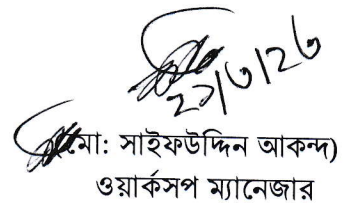 ২১/৩/২৬
(মো: সাইফউদ্দিন আকন্দ)
ওয়ার্কসপ ম্যানেজার